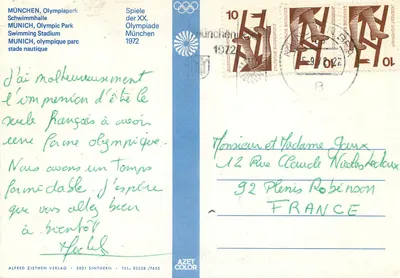 MÜNCHEN, Olympiapark
Schwimmhalle
MUNICH, Olympic Park
Swimming Stadium
MUNICH, olympique parc
stade nautique
Spiele
der XX.
Olympiade
München
1972
J'ai malheureusement
l'impression d'être le
seul français à avoir
une forme olympique.
Nous avons un temps
formidable. J'espère
que vous allez bien
à bientôt
Monsieur et Madame
12 Rue Claude
92 Plenis Robinson
FRANCE
10
10
10
München
1972
AZET
COLOR
ALFRED ZIETHEN VERLAG · 5021 SINTHERN · TEL. 02238/7655